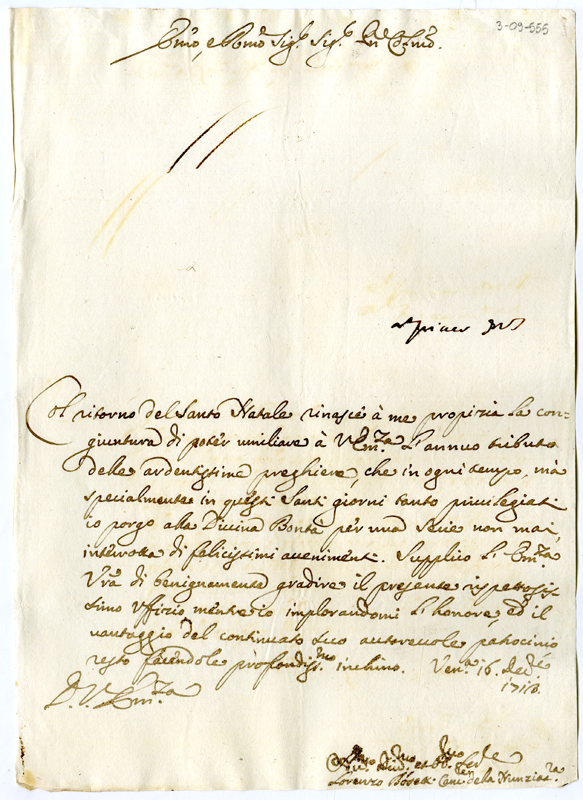 3-09-555
Emo, e Rmo Sigr. Sigr. Pn Colmo.
Col ritorno del Santo Natale rinasce à me propizia la con=
giuntura di poter umiliare à V Emza. l'annuo tributo
delle ardentissime preghiere, che in ogni tempo, mà
specialmente in questi Santi giorni tanto privilegiati
io porgo alla Divina Bontà per una serie non mai
interrotta di felicissimi avenimenti. Supplico l'Emza.
Vra. di benignamente gradire il presente rispettosis
simo Uffizio mentre io implorandomi l'honore, ed il
vantaggio del continuato suo autorevole patrocinio
resto facendole profondissmo. inchino. Vena. 16. decbe
D. V. Emza.
Lorenzo della Nunziata.